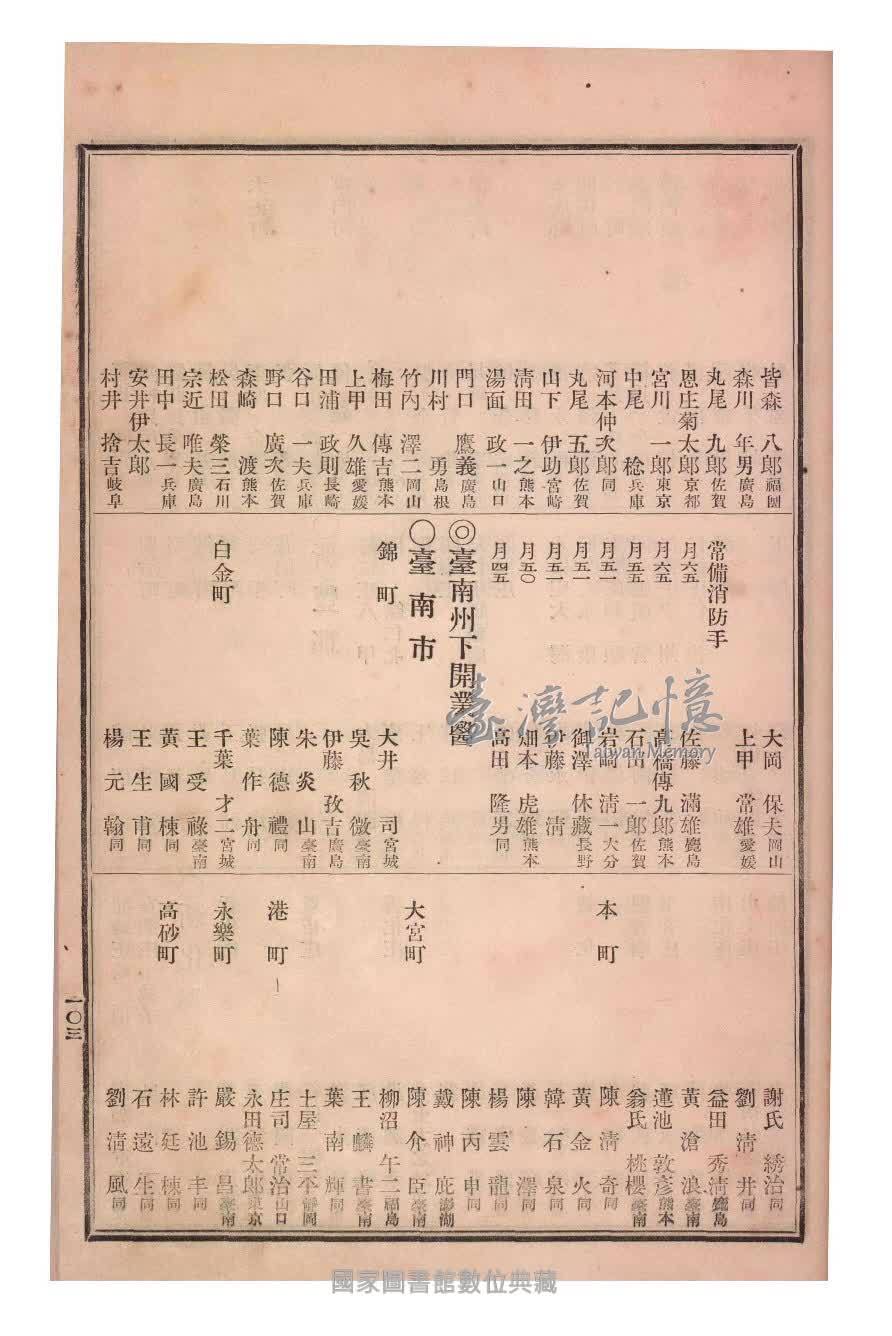 皆森 八郎 福岡
森川 年男 廣島
丸尾 九郎 佐賀
恩庄菊太郎 京都
宮川 一郎 東京
中尾 稔 兵庫
河本仲次郎 同
丸尾 五郎 佐賀
山下 伊助 宮崎
淸田 一之 熊本
湯面 政一 山口
門口 鷹義 廣島
川村 勇 島根
竹內 澤二 岡山
梅田 傳吉 熊本
上甲 久雄 愛媛
田浦 政則 長崎
谷口 一夫 兵庫
野口 廣次 佐賀
森崎 渡 熊本
松田 榮三 石川
宗近 唯夫 廣島
田中 長一 兵庫
安井伊太郎
村井 捨吉 岐阜
大岡 保夫 岡山
上甲 常雄 愛媛
常備消防手
月六五 佐藤 滿雄 鹿島
月六五 高橋傳九郎 熊本
月五五 石田 一郎 佐賀
月五一 岩崎 淸一 大分
月五一 御澤 休藏 長野
月五一 伊藤 淸
月五〇 畑本 虎雄 熊本
月四五 高田 隆男 同
◎臺南州下開業醫
〇臺南市
錦町 大井 司 宮城
吳秋微 臺南
伊藤 孜吉 廣島
朱炎山 臺南
陳德禮 同
葉作舟 同
白金町 千葉 才二 宮城
王受祿 臺南
黃國棟 同
王生甫 同
楊元翰 同
謝氏 綉治 同
劉淸井 同
益田 秀淸 鹿島
黃滄浪 臺南
蓮池 敦彥 熊本
翁氏 桃櫻 臺南
本町 陳淸奇 同
黃金火 同
韓石泉 同
陳澤 同
楊雲龍 同
陳丙申 同
戴神庇 澎湖
大宮町 陳介臣 臺南
柳沼 午二 福島
王麟書 臺南
葉南輝 同
土屋 三平 靜岡
港町 庄司 常治 山口
永田德太郎 東京
永樂町 嚴錫昌 臺南
許池丰 同
高砂町 林廷棟 同
石遠生 同
劉淸風 同
一〇三
臺灣記憶
Taiwan Memory
國家圖書館數位典藏